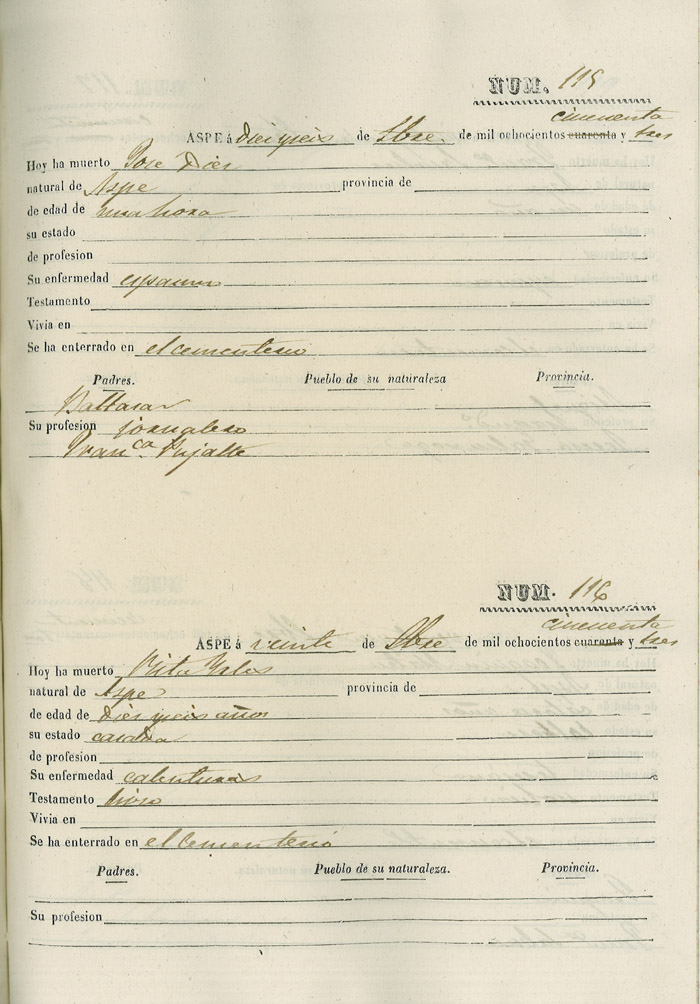 NUM. 115
cincuenta
ASPE á diez y seis de 8bre. de mil ochocientos cuarenta y tres
Hoy ha muerto Jose Diez
natural de Aspe provincia de
de edad de una hora
su estado
de profesion
Su enfermedad espasmo
Testamento
Vivia en
Se ha enterrado en el cementerio
Padres. Pueblo de su naturaleza Provincia.
Baltasar
Su profesion jornalero
Franca. Pujalte
NUM. 116
cincuenta
ASPE á veinte de 8bre de mil ochocientos cuarenta y tres
Hoy ha muerto Rita
natural de Aspe provincia de
de edad de diez y seis años
su estado casada
de profesion
Su enfermedad calenturas
Testamento
Vivia en
Se ha enterrado en el Cementerio
Padres. Pueblo de su naturaleza. Provincia.
Su profesion